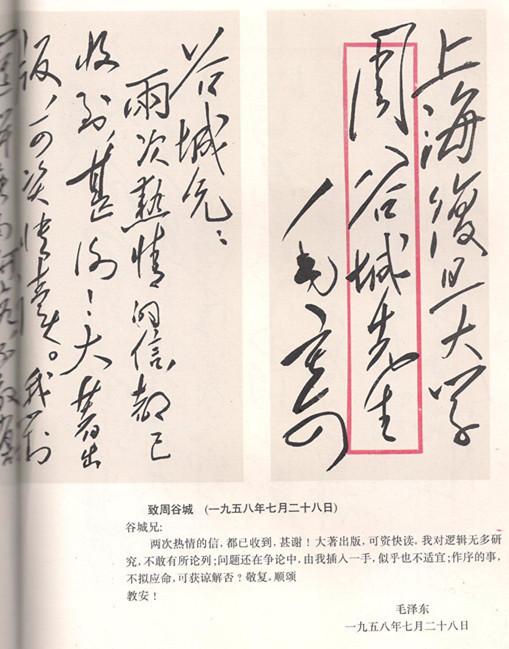 上海復旦大学
周谷城先生
毛
谷城兄：
兩次熱情的信，都已
收到，甚谢！大著出
版，可资快读。我对
致周谷城 (一九五八年七月二十八日)
谷城兄:
两次热情的信，都已收到，甚谢！大著出版，可资快读，我对逻辑无多研
究，不敢有所论列；问题还在争论中，由我插入一手，似乎也不适宜；作序的事，
不拟应命，可获谅解否？敬复，顺颂
教安！
毛泽东
一九五八年七月二十八日